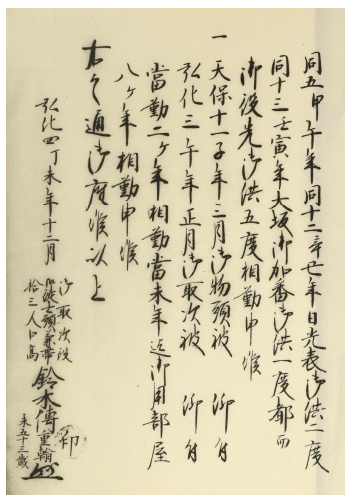 同五甲午年同十二辛亡年日光表御供二度
同十三壬寅年大坂御加番御供一度都而
御役先御供五度相勤申候
一 天保十一子年三月御物頭被 仰付
弘化三午年正月御取次被 仰付
當勤二ケ年相勤當未年迄御用部屋
八ケ年相勤申候
右之通御座候以上
弘化四丁未年十二月
御取次役
拾三人口高
鈴木傳
重翰
印
未五十三歳